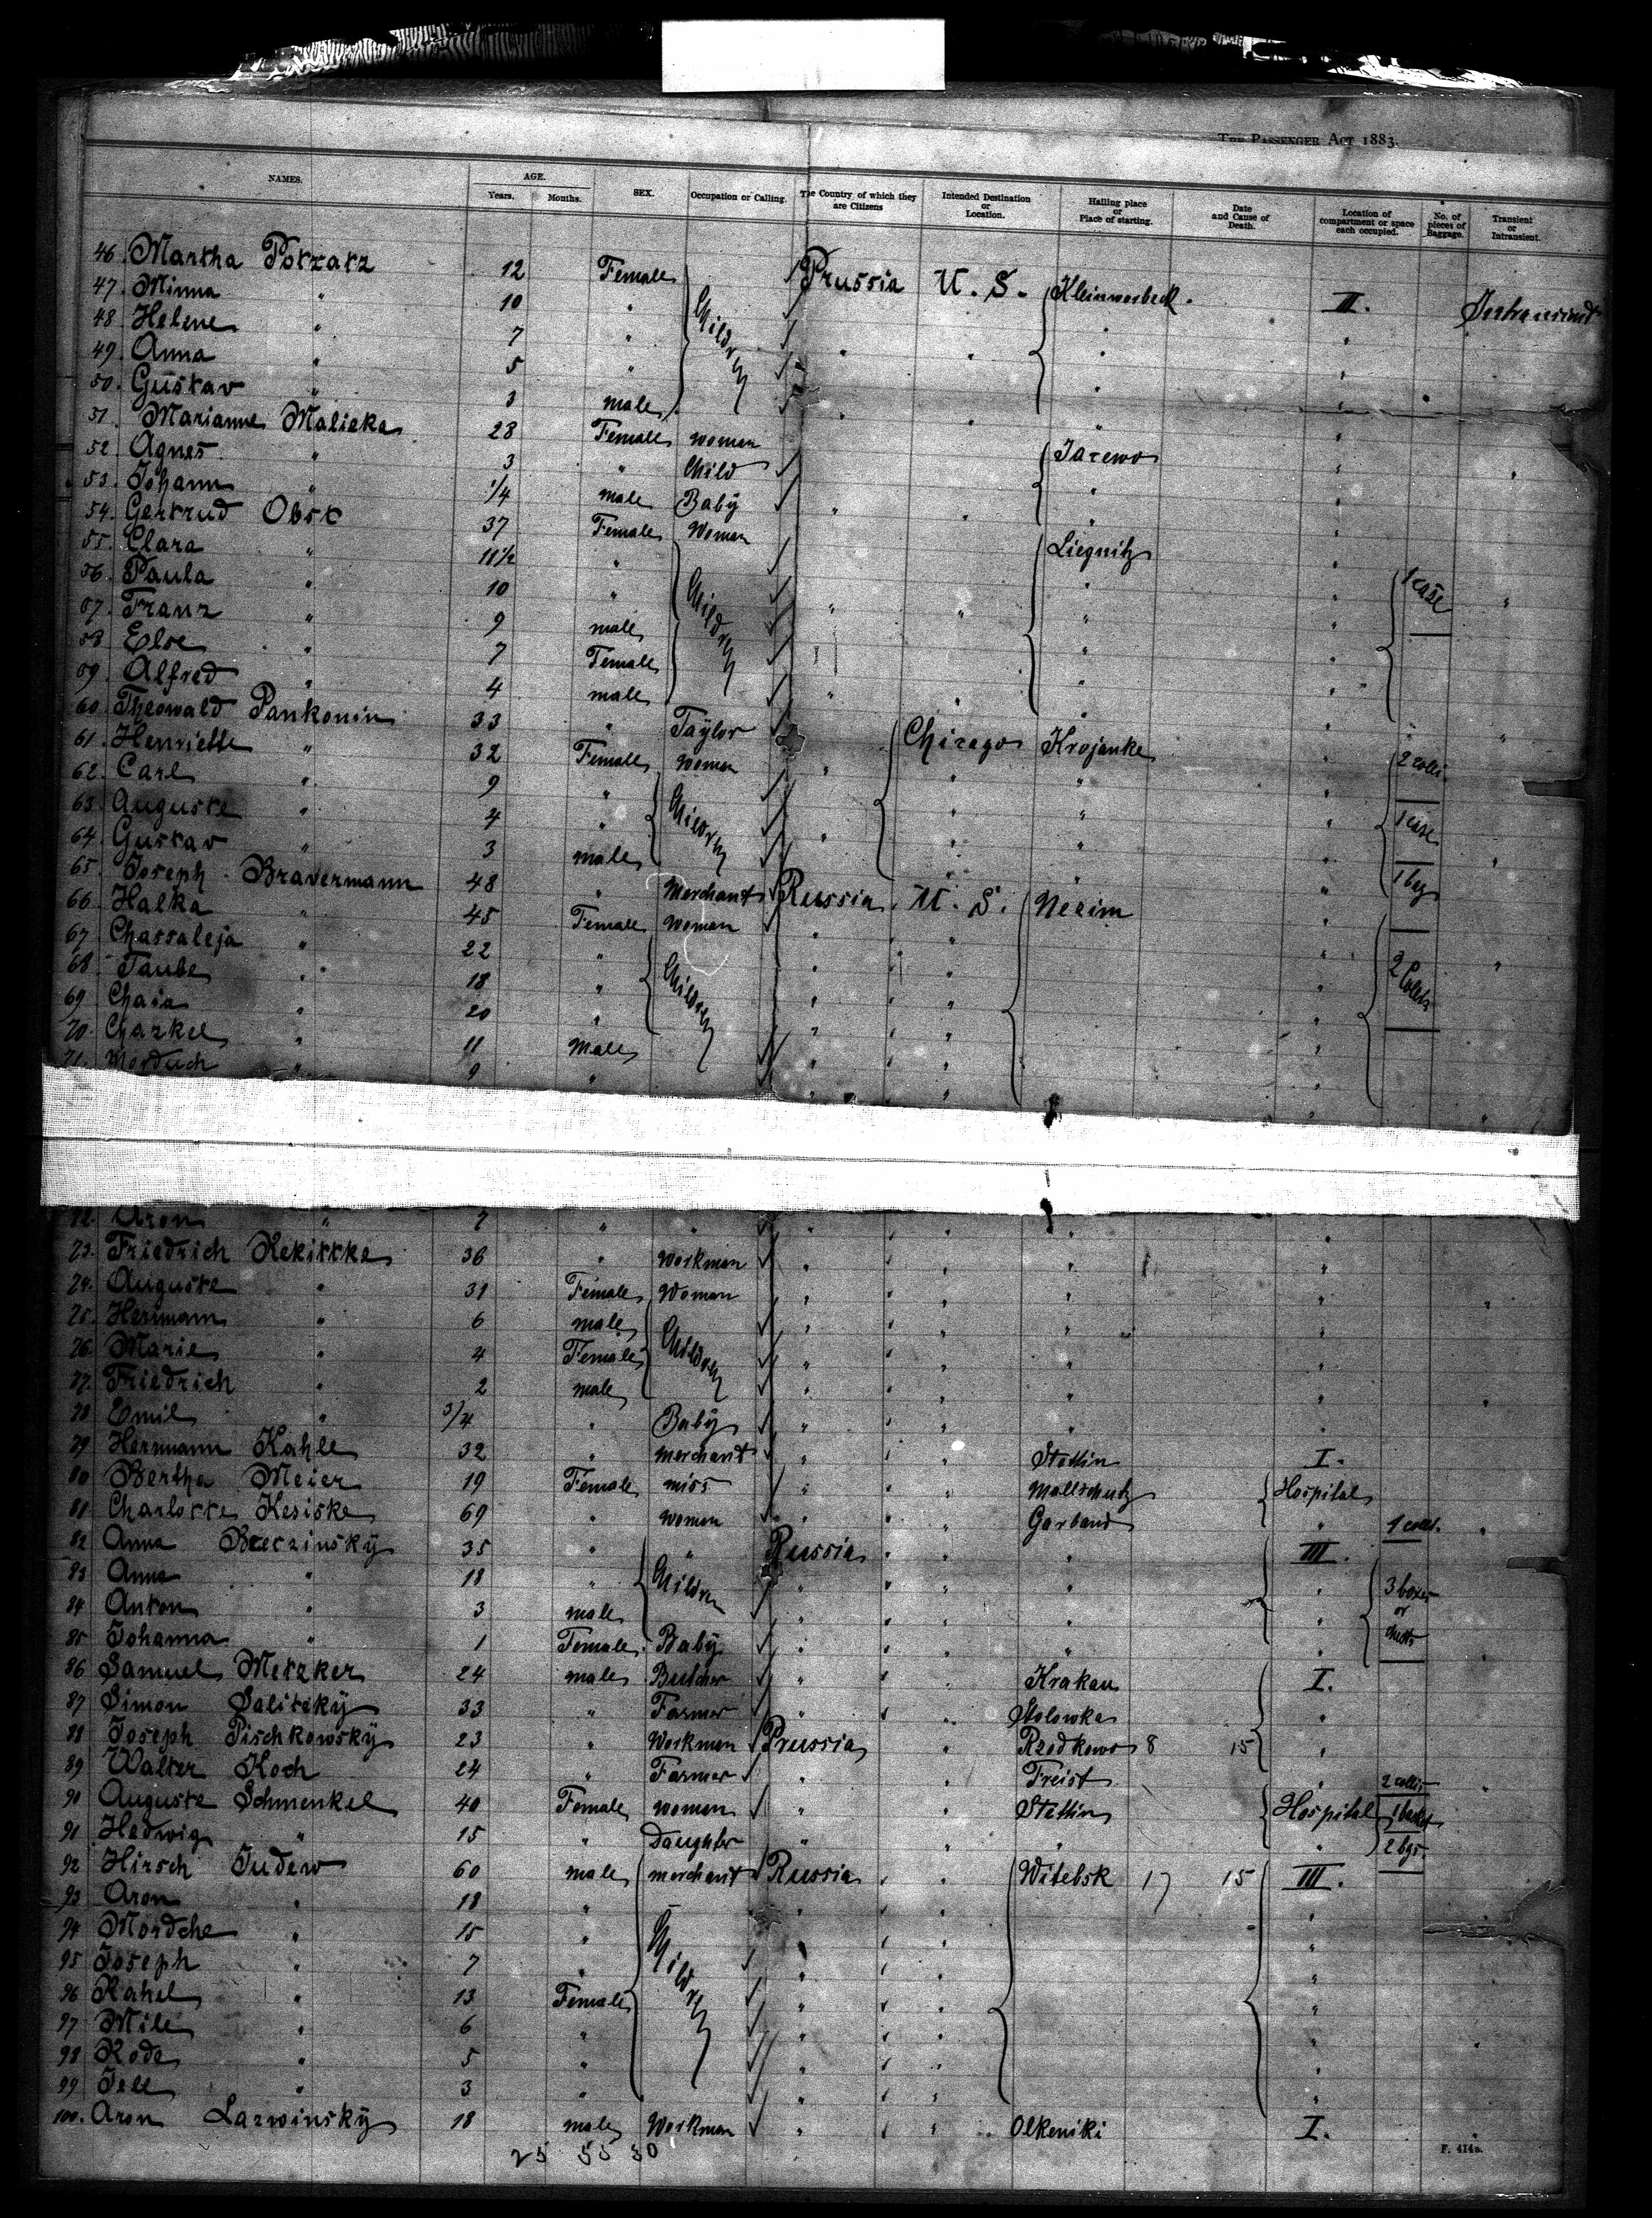 THE PASSENGER ACT 1883.
NAMES. AGE. Years. Months. SEX. Occupation or Calling. The Country of which they are Citizens Intended Destination or Location. Hailing place or Place of starting. Date and Cause of Death. Location of compartment or space each occupied. No. of pieces of Baggage. Transient or Intransient.
46. Martha Potratz 12 Female Children Prussia U. S. II.
47. Minna " 10 "
48. Helene " 7 "
49. Anna " 5 "
50. Gustav " 3 male
51. Marianne Malicka 28 Female woman
52. Agnes " 3 " Child
53. Johann " 1/4 male Baby
54. Gertrud Obst 37 Female Woman Liegnitz
55. Clara " 11 1/2 " Children
56. Paula " 10 " 1 case
57. Franz " 9 male
58. Else " 7 Female
59. Alfred " 4 male
60. Theowald Pankonin 33 " Taylor Chicago Krojanke
61. Henriette " 32 Female Woman 2 colli
62. Carl " 9 " Children
63. Auguste " 4 " 1 case
64. Gustav " 3 male
65. Joseph Bravermann 48 " Merchant Russia U. S. 1 bag
66. Halka " 45 Female Woman
67. Chassaleja " 22 " Children
68. Taube " 18 "
69. Chaia " 20 "
70. Chazkel " 11 Male
71. Morduch " 9 "
72. Aron " 7 " "
73. Friedrich Rekittke 36 " Workman
74. Auguste " 31 Female Woman
75. Herrmann " 6 male Children
76. Marie " 4 Female
77. Friedrich " 2 male
78. Emil " 3/4 " Baby
79. Herrmann Kahle 32 " merchant Stettin I.
80. Bertha Meier 19 Female miss Mallschutz Hospital
81. Charlotte Kesiske 69 " woman Garband "
82. Anna Breczinsky 35 " " Russia III.
83. Anna " 18 " Children 3 boxes or chests
84. Anton " 3 male
85. Johanna " 1 Female Baby
86. Samuel Metzker 24 male Butcher Krakau I.
87. Simon Salitzky 33 " Farmer Stolowka
88. Joseph Pischkowsky 23 " Workman Prussia Rzodkowo 8 15
89. Walter Koch 24 " Farmer Freist 2 colli
90. Auguste Schmenkel 40 Female woman Stettin Hospital
91. Hedwig " 15 " Daughter " 2 bgs.
92. Hirsch Judew 60 male merchant Russia Witebsk 17 15 III.
93. Aron " 18 " Children
94. Mordche " 15 "
95. Joseph " 7 "
96. Rahel " 13 Female
97. Mile " 6 "
98. Rode " 5 "
99. " 3 "
100. Aron Lazwinsky 18 male Workman Olkeniki I.
25 55 30
F. 414a.